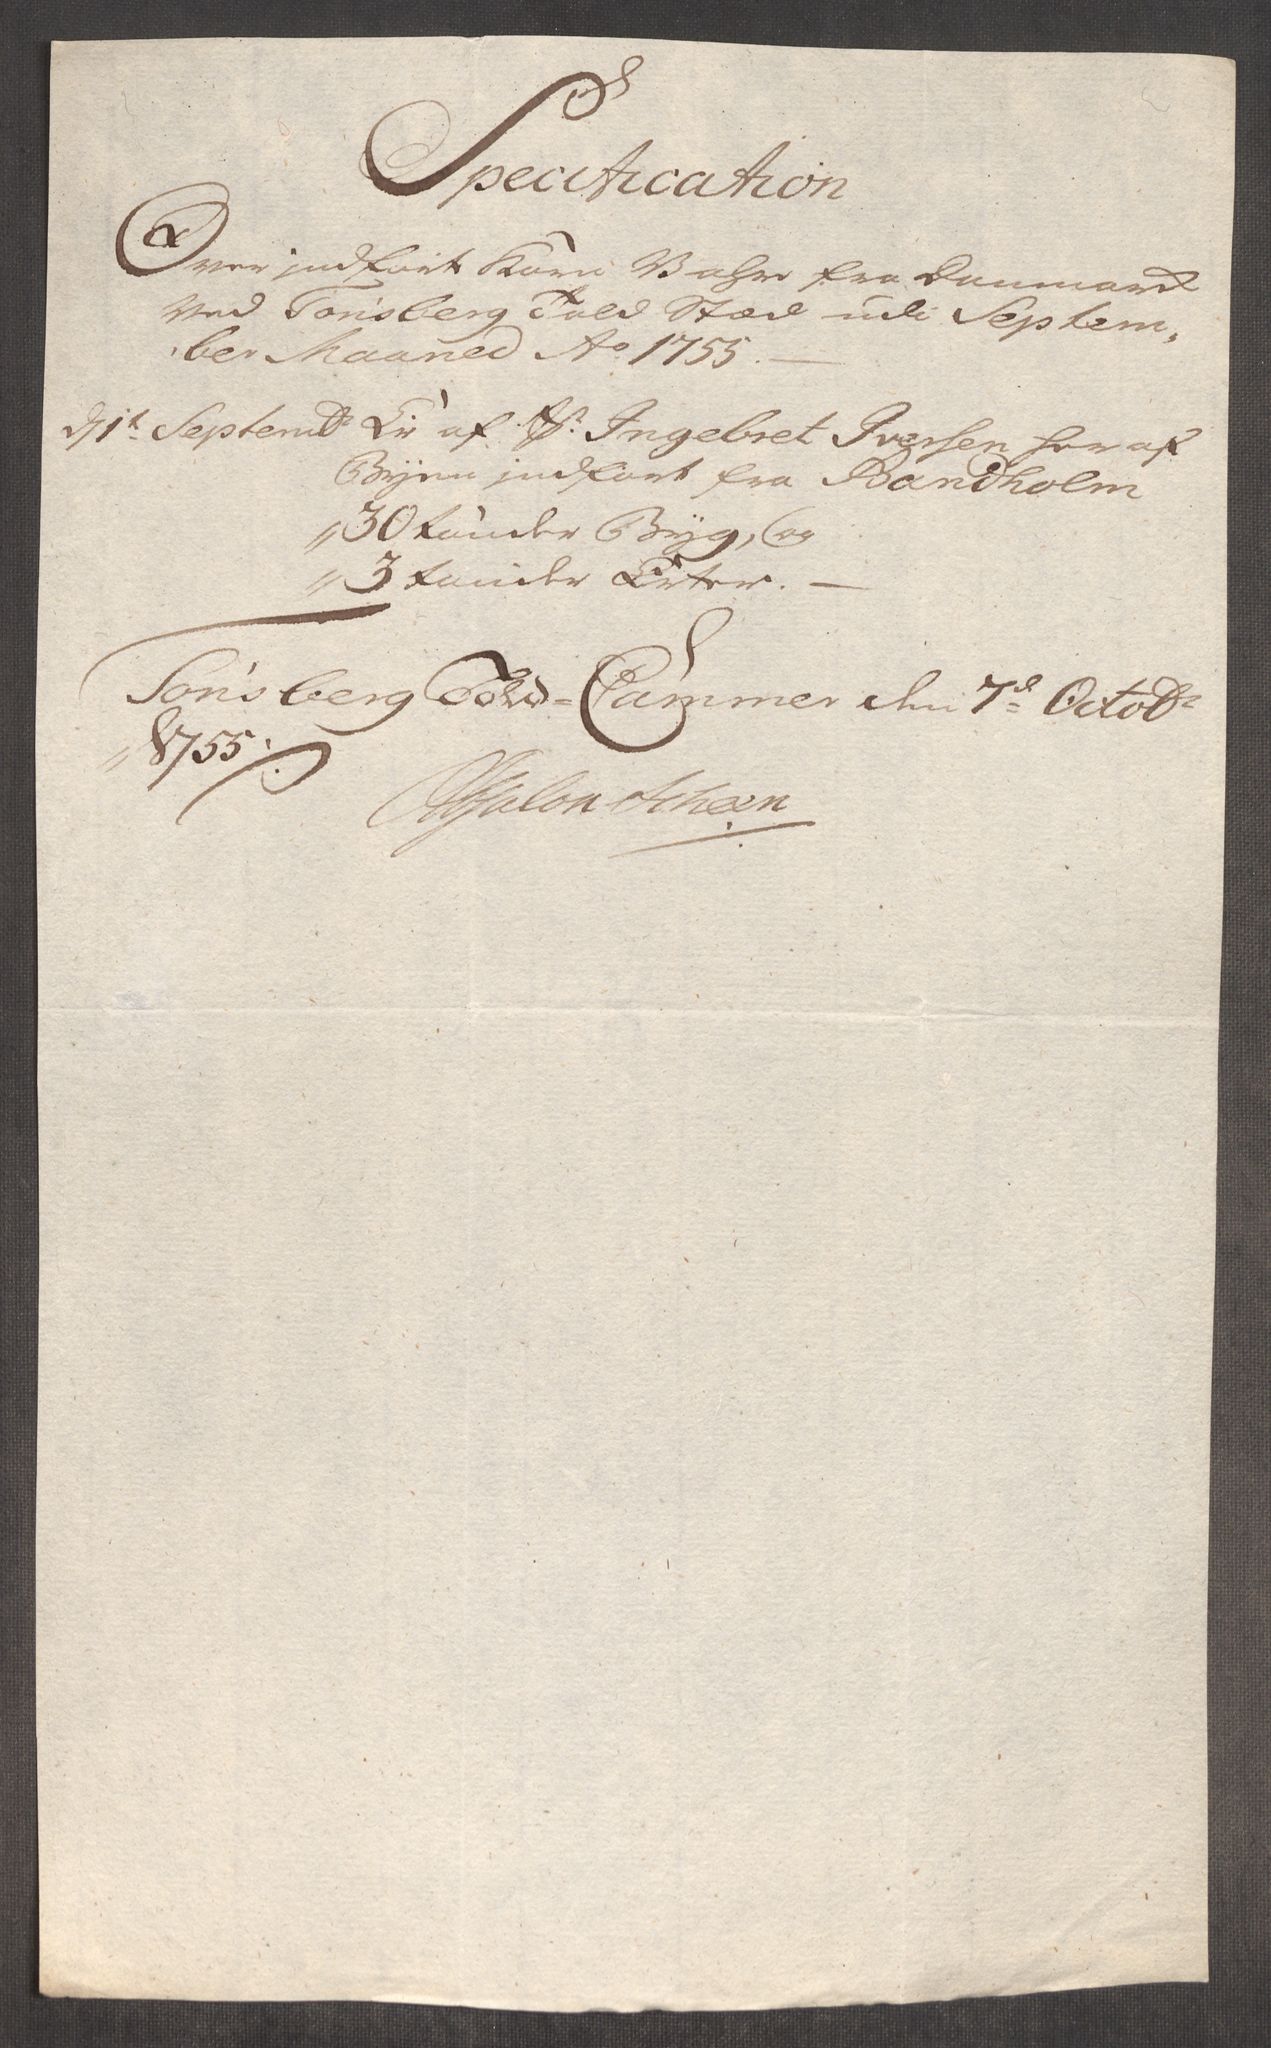 Specification
Over indfört Korn Vahre fra Danmarck
Ved Tönsberg Told Stæd udi Septem,
ber Maaned Ao 1755. —
d 1t Septembr Er af Sr. Ingebret Iversen her af
Byen indfört fra Bandholm
„ 30 tönder Byg, og
„ 3 tönder Erter. —
Tönsberg Told-Cammer den 7d Octobr
„ 1755.
Absalon Achen